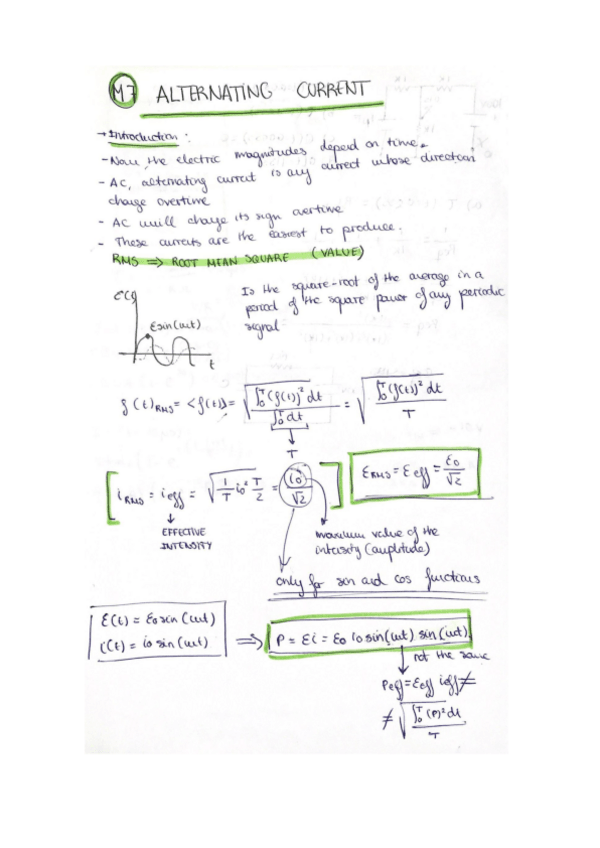 M7 ALTERNATING CURRENT
→ Introduction :
- Now, the electric magnitudes depend on time.
- AC, alternating current is any current whose direction
change overtime
- AC will change its sign overtime
- These currents are the easiest to produce.
RMS ⇒ ROOT MEAN SQUARE (VALUE)
Is the square-root of the average in a
period of the square power of any periodic
signal
ε(t)
εsin(ωt)
t
f(t)RMS = <f(t)> = √(∫₀ᵀ(f(t))² dt / ∫₀ᵀ dt) = √(∫₀ᵀ(f(t))² dt / T)
↓
T
iRMS = ieff = √(1/T i₀² T/2) = i₀/√2
εRMS = εeff = ε₀/√2
↓
EFFECTIVE
INTENSITY
maximum value of the
intensity (amplitude)
only for sin and cos functions
ε(t) = ε₀ sin(ωt)
i(t) = i₀ sin(ωt)
⇒ P = εi = ε₀ i₀ sin(ωt) sin(ωt)
↓ not the same
Peff = εeff ieff ≠
≠ √(∫₀ᵀ(P)² dt / T)